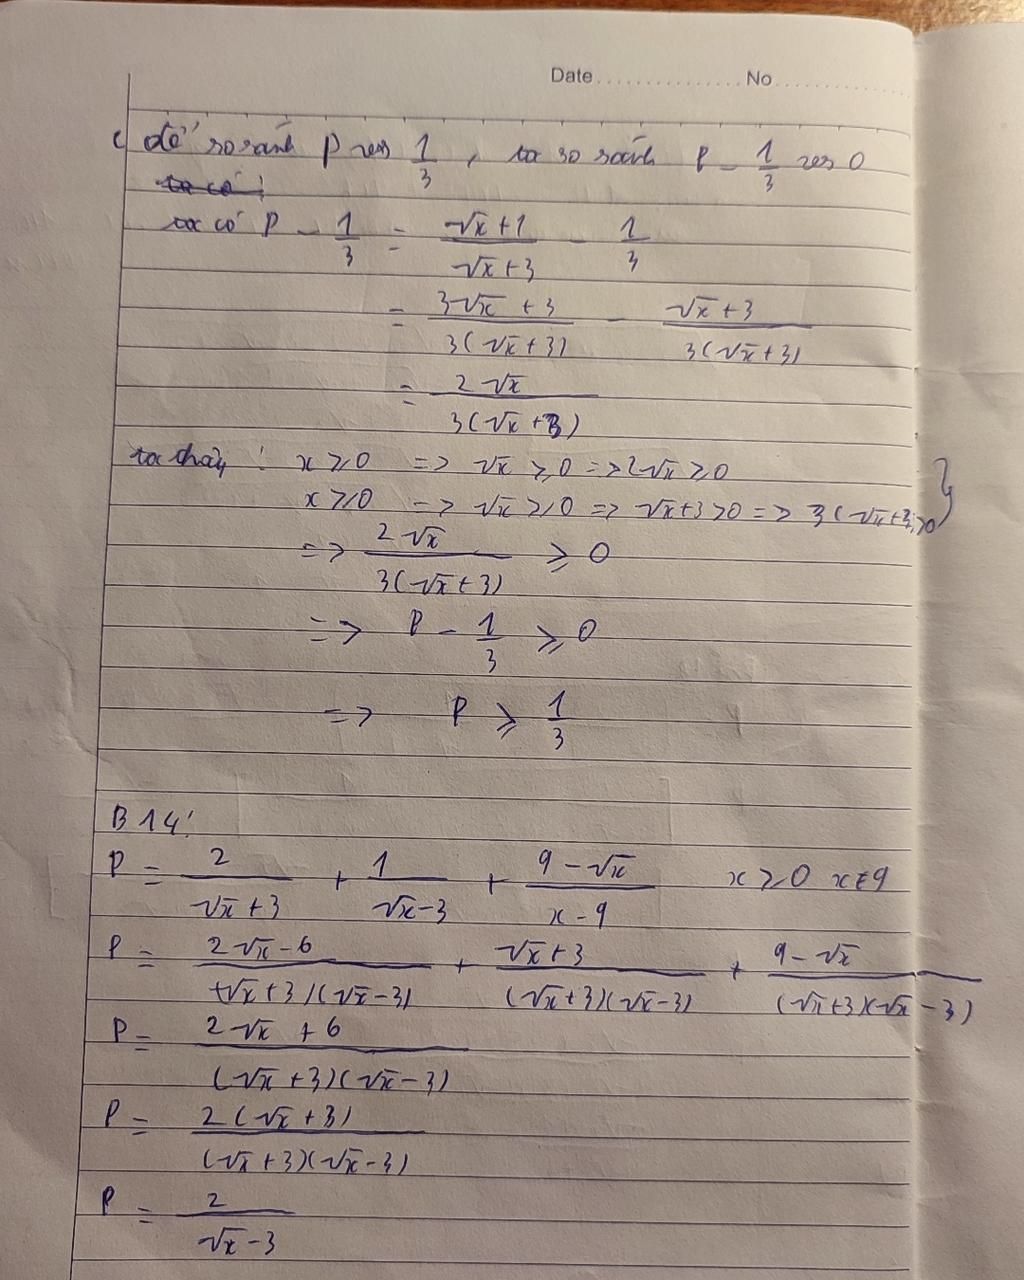 Date ............... No ...............
c, để so sánh P với 1/3, ta so sánh P - 1/3 với 0
ta có P - 1/3 = (√x + 1)/(√x + 3) - 1/3
= (3√x + 3)/(3(√x + 3)) - (√x + 3)/(3(√x + 3))
= 2√x/(3(√x + 3))
ta thấy : x ⩾ 0 => √x ⩾ 0 => 2√x ⩾ 0
x ⩾ 0 => √x ⩾ 0 => √x + 3 > 0 => 3(√x + 3) > 0 }
=> 2√x/(3(√x + 3)) ⩾ 0
=> P - 1/3 ⩾ 0
=> P ⩾ 1/3
B 14:
P = 2/(√x + 3) + 1/(√x - 3) + (9 - √x)/(x - 9) x ⩾ 0 x ≠ 9
P = (2√x - 6)/((√x + 3)(√x - 3)) + (√x + 3)/((√x + 3)(√x - 3)) + (9 - √x)/((√x + 3)(√x - 3))
P = (2√x + 6)/((√x + 3)(√x - 3))
P = 2(√x + 3)/((√x + 3)(√x - 3))
P = 2/(√x - 3)